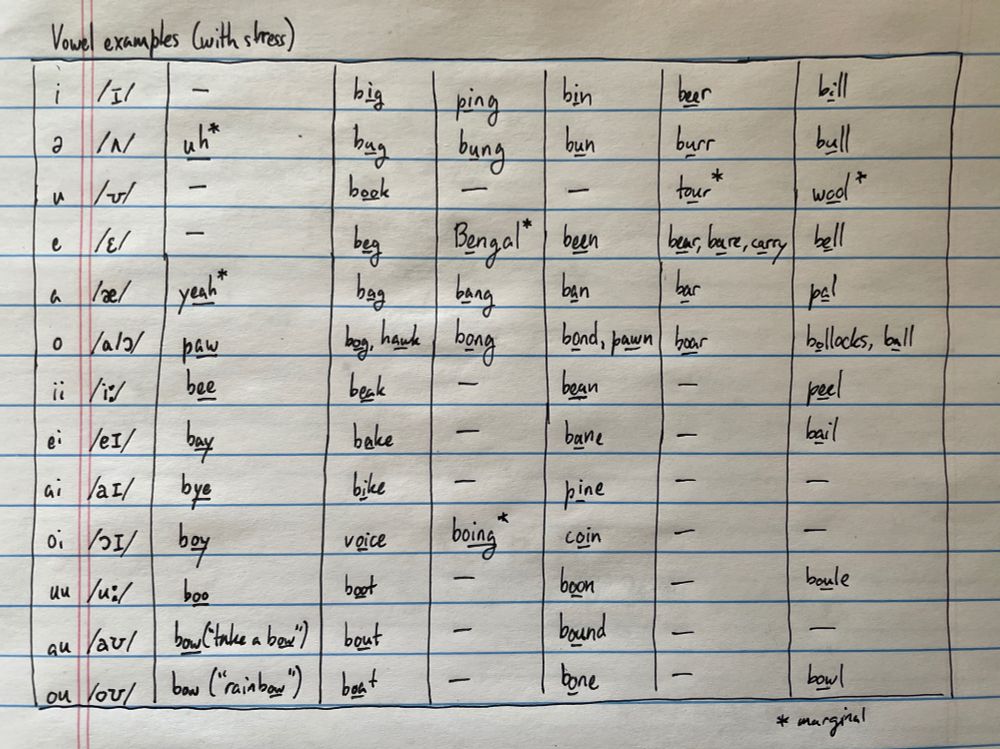 Vowel examples (with stress)
i /ɪ/ – big ping bin beer bill
ə /ʌ/ uh* bug bung bun burr bull
u /ʊ/ – book – – tour* wool*
e /ɛ/ – beg Bengal* been bear, bare, carry bell
a /æ/ yeah* bag bang ban bar pal
o /a/ɔ/ paw bog, hawk bong bond, pawn boar bollocks, ball
ii /i:/ bee beak – bean – peel
ei /eɪ/ bay bake – bane – bail
ai /aɪ/ bye bike – pine – –
oi /ɔɪ/ boy voice boing* coin – –
uu /u:/ boo boot – boon – boule
au /aʊ/ bow ("take a bow") bout – bound – –
ou /oʊ/ bow ("rainbow") boat – bone – bowl
* marginal